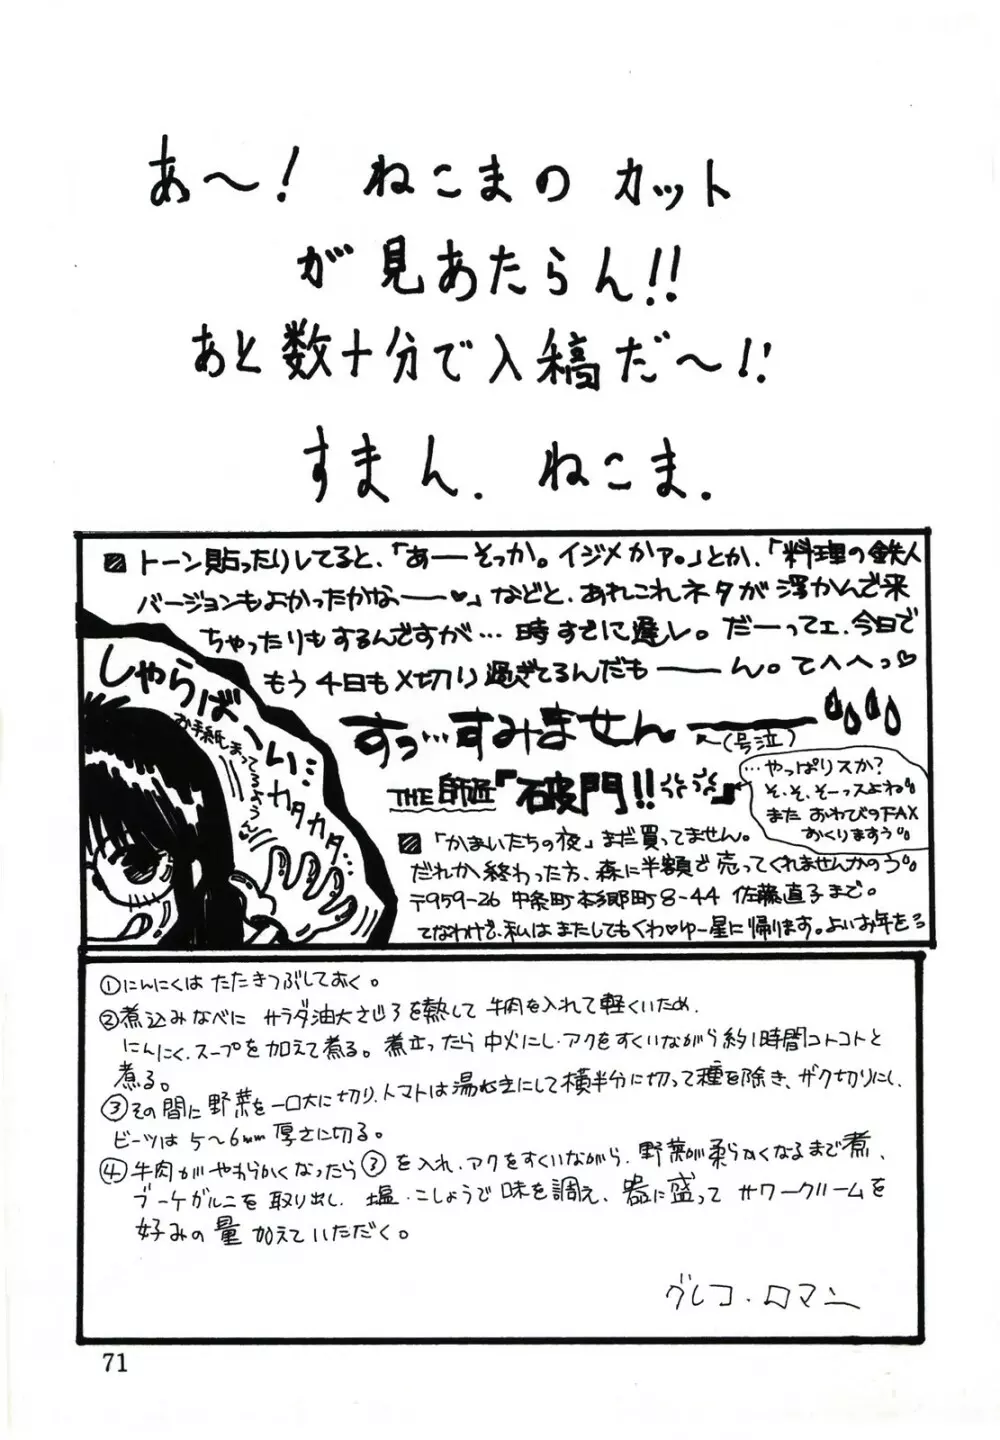 あ〜! ねこまの カット
が見あたらん!!
あと数十分で入稿だ〜!!
すまん. ねこま.
トーン貼ったりしてると、「あーそっか。イジメかァ。」とか、「料理の鉄人
バージョンもよかったかなー♥」などと、あれこれネタが浮かんで来
ちゃったりもするんですが… 時すでに遅し。だーってェ、今日で
もう4日も〆切り過ぎてるんだも——ん。てへへっ♡
すっ…すみません——
(号泣)
THE 師匠『破門!!』
…やっぱりスか?
そ、そ、そーっスよね
また おわびのFAX
おくりますぅ
「かまいたちの夜」まだ買ってません。
だれか終わった方、森に半額で売ってくれませんかのう。
てなわけで、私はまたしてもくわ♡ゆー星に帰ります。よいお年を
しゃらばーい…
お手紙まってるよぅん
カタカタ
①にんにくは たたきつぶしておく。
②煮込みなべに サラダ油大さじ3を熱して 牛肉を入れて軽くいため、
にんにく、スープを加えて煮る。煮立ったら中火にし、アクをすくいながら約1時間コトコトと
煮る。
③その間に野菜を一口大に切り、トマトは湯むきにして横半分に切って種を除き、ザク切りにし、
ビーツは5〜6mm厚さに切る。
④牛肉がやわらかくなったら③を入れ、アクをすくいながら、野菜が柔らかくなるまで煮、
ブーケガルニを取り出し、塩・こしょうで味を調え、器に盛ってサワークリームを
好みの量 加えていただく。
グレコ・ロマン
71